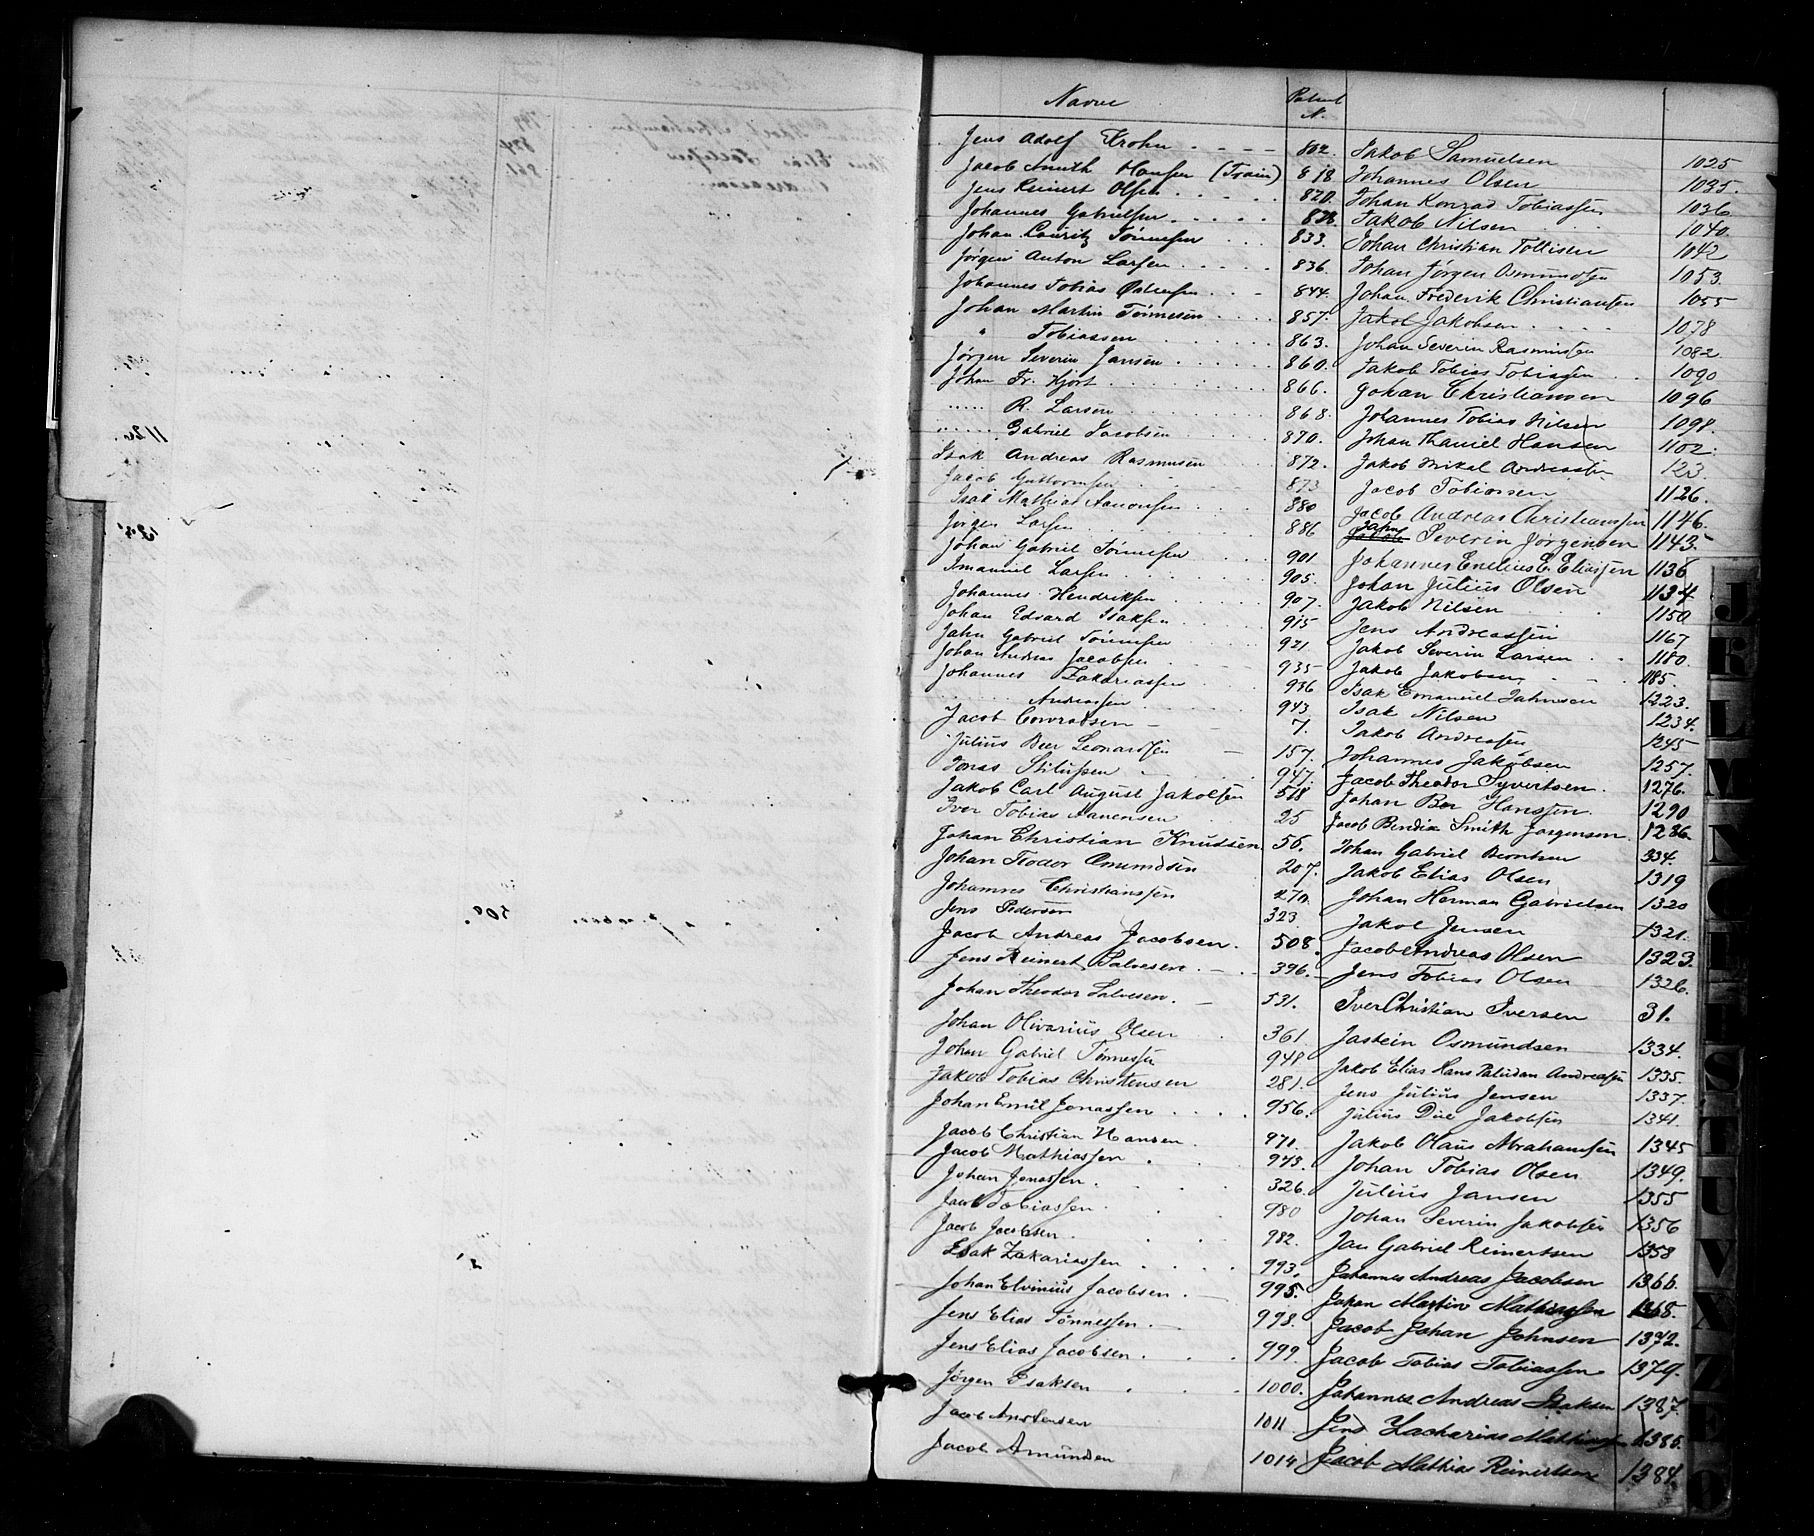 Navne Patent N.
Jens Adolf Krohn 802.
Jacob Smith Hansen (Train) 818
Jens Reinert Olsen 820.
Johannes Gabrielsen 828
Johan Lauritz Tönnesen 833.
Jörgen Anton Larsen 836.
Johannes Tobias 844.
Johan Martin Tönnesen 857.
" Tobiassen 863.
Jörgen Severin Jansen 860.
Johan Fr. Hjort 866.
" R. Larsen 868.
" Gabriel Jacobsen 870.
Isak Andreas Rasmusen 872.
Jacob Guttormsen 873
Isak Mathias Aanonsen 880
Jörgen Larsen 886
Johan Gabriel Tönnesen 901
Imanuel Larsen 905.
Johannes Hendriksen 907.
Johan Edvard Isaksen 915
Jahn Gabriel Tönnesen 921
Johan Andreas Jacobsen 935
Johannes Zakariassen 936
" Andreassen 943.
Jacob Conradsen 7.
Julius Beer Leonardsen 157.
Jonas Stilufsen 947.
Jakob Carl August Jakobsen 518
Iver Tobias Aanensen 25
Johan Christian Knudsen 56.
Johan Teodor Omundsen 207.
Johannes Christianssen 270.
Jens Pedersen 323
Jacob Andreas Jacobsen. 508.
Jens Reinert Salvesen 396.
Johan Theodor Salvesen. 531.
Johan Olivarius Olsen 361
Johan Gabriel Tönnessen 948
Jakob Tobias Christensen 281.
Johan Emil Jonassen 956.
Jacob Christian Hansen 971.
Jacob Mathiassen 973.
Johan Jonassen. 326.
Jacob Tobiassen 980
Jacob Jacobsen. 982.
Isak Zakariassen 993.
Johan Elvinius Jacobsen 995.
Jens Elias Tönnessen. 998.
Jens Elias Jacobsen. 999.
Jörgen Isaksen 1000.
Jacob Anstensen 1011
Jacob Amundsen 1014
Jakob Samuelsen 1025
Johannes Olsen 1035.
Johan Konrad Tobiassen 1036
Jakob Nilsen 1040.
Johan Christian Tollisen 1042
Johan Jörgen Osmundsen 1053.
Johan Frederik Christiansen 1055
Jakob Jakobsen 1078
Johan Severin Rasmussen 1082.
Jakob Tobias Tobiassen 1090
Johan Christiansen 1096
Johannes Tobias Nilsen 1098.
Johan Thaniel Hansen 1102.
Jakob Mikal Andreassen 123.
Jacob Tobiassen 1126.
Jacob Andreas Christianssen 1146.
Jahn Severin Jörgensen 1143.
Johannes Enelius E. Eliassen 1136
Johan Julius Olsen 1134
Jakob Nilsen 1150
Jens Andreassen 1167
Jakob Severin Larsen 1180.
Jakob Jakobsen 1185.
Isak Emanuel Jahnsen 1223.
Isak Nilsen 1234.
Jakob Andreassen 1245
Johannes Jakobsen 1257.
Jacob Theodor Syvertsen. 1276.
Johan Ber Hanssen. 1290
Jacob Bendix Smith Jörgensen. 1286.
Johan Gabriel Berntsen 334.
Jakob Elias Olsen 1319
Johan Herman Gabrielsen 1320
Jakob Jensen 1321.
Jacob Andreas Olsen 1323.
Jens Tobias Olsen 1326.
Iver Christian Iversen 31.
Jastein Osmundsen 1334.
Jakob Elias Hans Paludan Andreassen 1335.
Jens Julius Jensen 1337.
Julius Due Jakobsen 1341.
Jakob Olaus Abrahamsen 1345
Johan Tobias Olsen 1349.
Julius Jansen 1355
Johan Severin Jakobsen 1356
Jan Gabriel Reinertsen 1358
Johannes Andreas Jacobsen 1366.
Johan Martin Mathiassen 1368.
Jacob Johan Johnsen 1372.
Jacob Tobias Tobiassen 1379.
Johannes Andreas Isaksen 1387.
Jens Zacharias Mathiassen 1385.
Jacob Mathias Reinertsen 1384.
J
K
L
M
N
O
P
S
T
U
V
X
Z
E
Ø